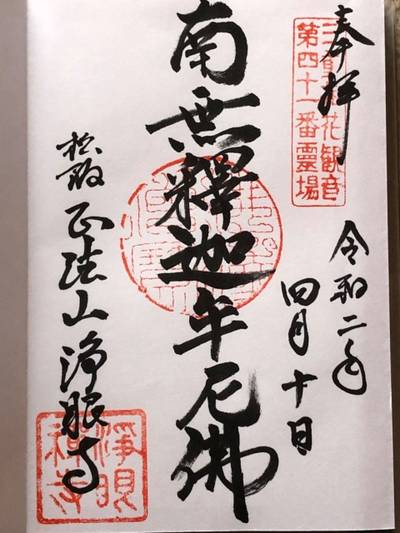 奉拝
花観音
第四十一番靈場
令和二年
四月十日
南無釋迦牟尼佛
松阪 正法山 浄眼寺
淨眼
禅寺